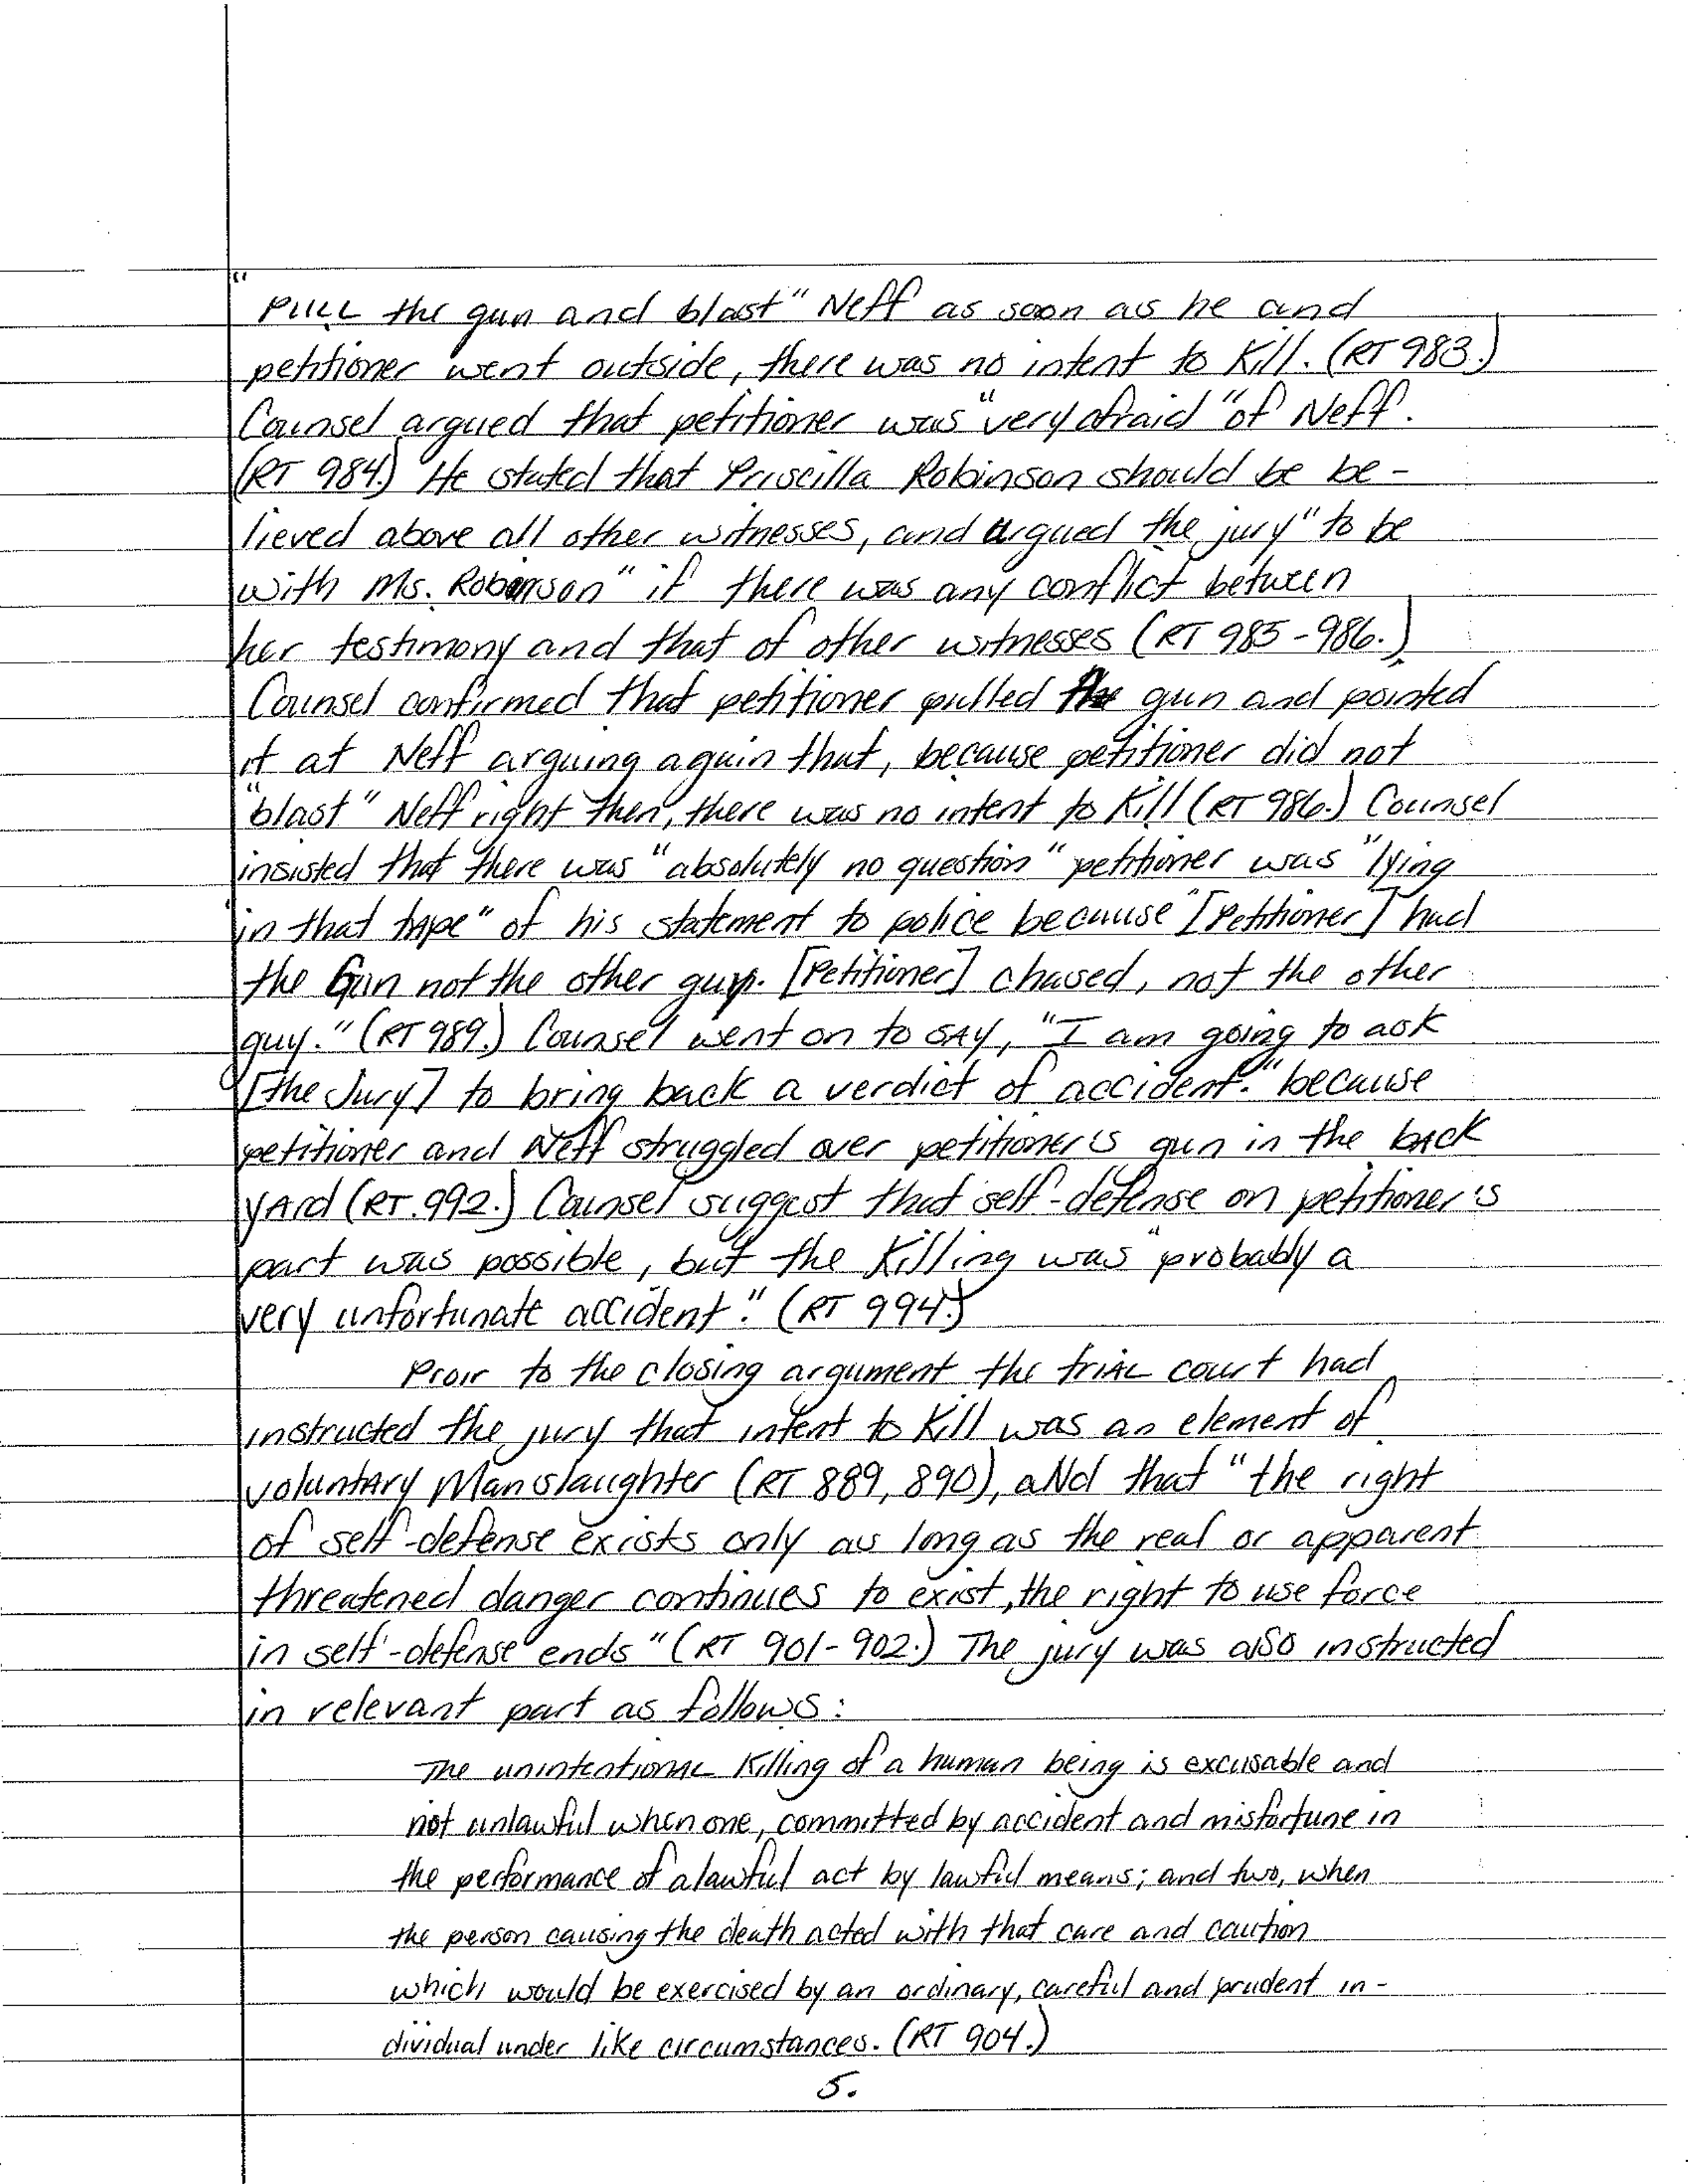 "PULL the gun and blast" Neff as soon as he and
petitioner went outside, there was no intent to Kill. (RT 983.)
Counsel argued that petitioner was "very afraid" of Neff.
(RT 984.) He stated that Priscilla Robinson should be be-
lieved above all other witnesses, and urgued the jury "to be
with Ms. Robinson" if there was any conflict between
her testimony and that of other witnesses (RT 985-986.)
Counsel confirmed that petitioner pulled the gun and pointed
it at Neff arguing again that, because petitioner did not
"blast" Neff right then, there was no intent to Kill (RT 986.) Counsel
insisted that there was "absolutely no question" petitioner was "lying
in that tape" of his statement to police because "[Petitioner] had
the Gun not the other guy. [Petitioner] chased, not the other
guy." (RT 989.) Counsel went on to SAY, "I am going to ask
[the Jury] to bring back a verdict of accident." because
petitioner and Neff struggled over petitioner's gun in the bAck
yArd (RT. 992.) Counsel suggest that self-defense on petitioner's
part was possible, but the Killing was "probably a
very unfortunate accident." (RT 994.)
Proir to the closing argument the triAL court had
instructed the jury that intent to Kill was an element of
voluntAry Manslaughter (RT 889, 890), aNd that "the right
of self-defense exists only as long as the real or apparent
threatened danger continues to exist, the right to use force
in self-defense ends" (RT 901-902.) The jury was also instructed
in relevant part as follows:
The unintentionAL Killing of a human being is excusable and
not unlawful when one, committed by accident and misfortune in
the performance of a lawful act by lawful means; and two, when
the person causing the death acted with that care and caution
which would be exercised by an ordinary, careful and prudent in-
dividual under like circumstances. (RT 904.)
5.